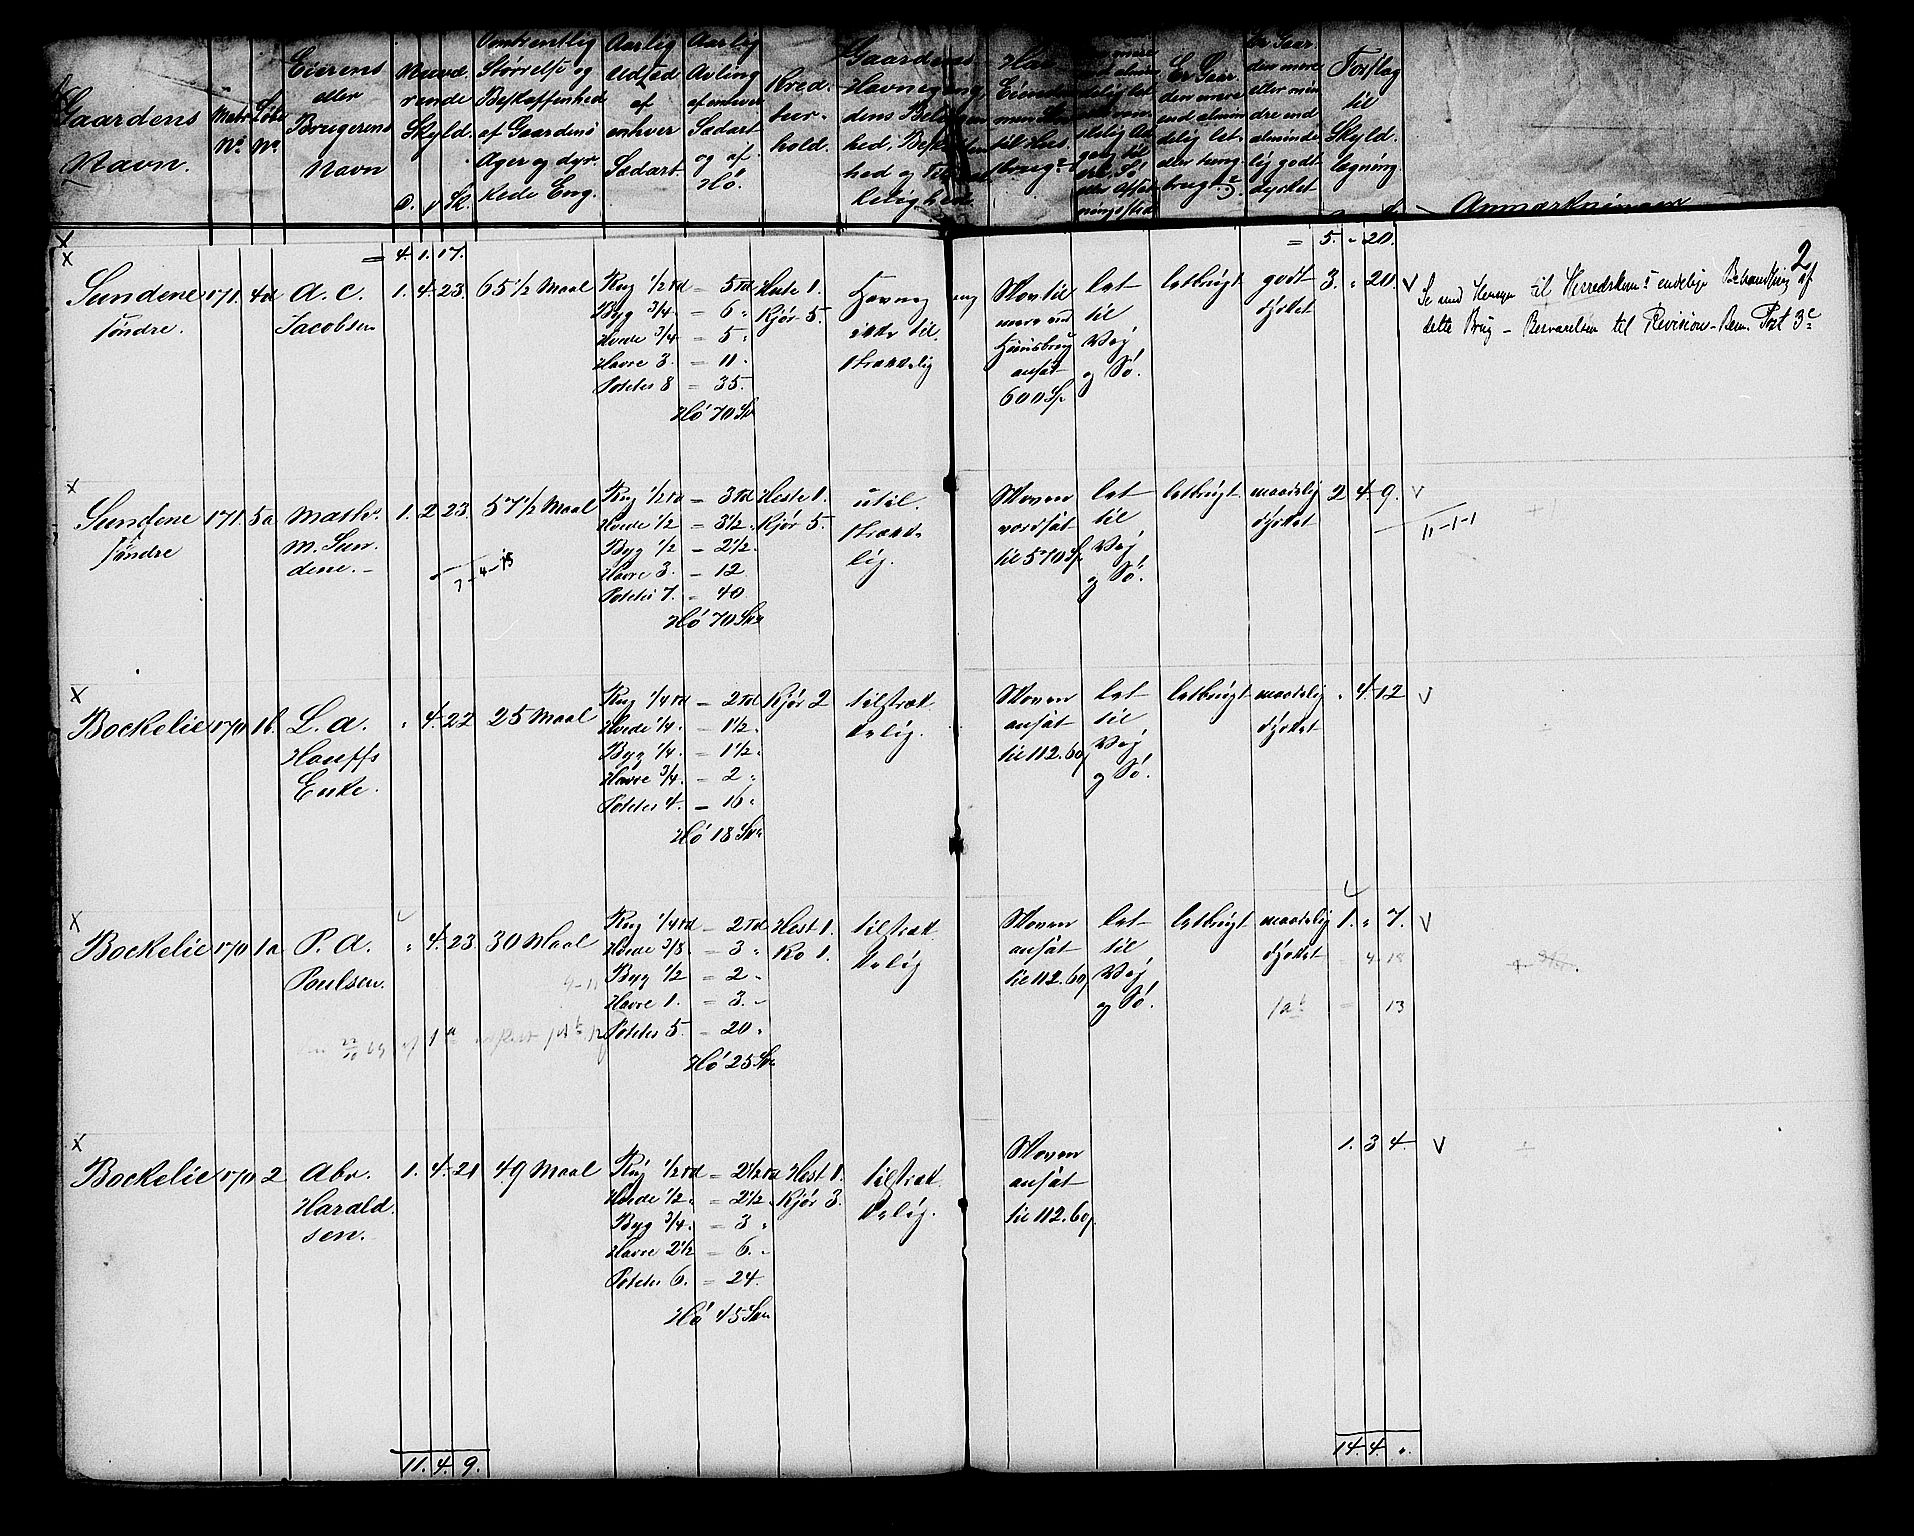 Gaardens Navn.
Matr. No.
Løbe No.
Eierens eller Brugerens Navn
Nuværende Skyld. D. Sk.
Omtrentlig Størrelse og Beskaffenhed af Gaardens Ager og dyrkede Eng.
Aarlig Udsæd af enhver Sædart
Aarlig Avling af enhver Sædart og af Hø.
Kreaturhold.
Gaardens Havnegang, dens Beliggenhed, Beskaffenhed og Tilstrækkelighed.
Er Gaarden mere end almindelig let eller tungbrugt?
Er Gaarden mere eller mindre end almindelig godt dyrket
Forslag til Skyldlægning.
Anmærkninger
2
= 4. 1. 17.
= 5. " 20.
X
X
Sundene søndre.
171. 4a
A. C. Jacobsen
1. 4. 23.
65 1/2 Maal
Rug 1/2 Td = 5 Td
Byg 3/4. = 6 "
Hvede 3/4 = 5 "
Havre 3. = 11 "
Poteter 8 = 35.
Hø 70 Sk
Heste 1.
Kjør 5.
Havnegang ikke tilstrækkelig
Skov til mere end Huusbrug ansat 600 Sp
let til Vej og Sø.
letbrugt
godt dyrket
3. " 20. V
Se med Hensyn til Herredskom.s endelige Behandling af
dette Brug – Besvarelsen til Revision-Bem. Post 3 c
X
Sundene søndre
171. 5a
Math. M. Sundene. –
1. 2 23.
7 – 4 – 15
57 1/2 Maal
Rug 1/2 Td = 3 Td
Hvede 1/2 = 3 1/2.
Byg 1/2 – 2 1/2.
Havre 3. – 12
Poteter 7. = 40.
Hø 70 Skr
Heste 1.
Kjør 5.
utilstrækkelig.
Skoven værdsat til 570 Sp.
let til Vej og Sø.
letbrugt
maadelig dyrket
2 4. 9. V
11 – 1 – 1
X
Bockelie
170 1b.
L. A. Hauffs Enke.
" 4. 22
25 Maal
Rug 1/4 Td – 2 Td
Hvede 1/4. – 1 1/2.
Byg 1/4. = 1 1/2.
Havre 3/4. – 2 "
Poteter 4. – 16 "
Hø 18 Skr
Kjør 2
tilstrækkelig.
Skoven ansat til 112.60
let til Vej og Sø.
letbrugt
maadelig dyrket
" 4. 12 V
X
Bockelie
170 1a
P. A. Poulsen.
" 4. 23.
30 Maal
Rug 1/4 Td – 2 Td
Hvede 3/8 = 3 "
Byg 1/2 – 2 "
Havre 1. – 3. "
Poteter 5. – 20 "
Hø 25 Skr
Hest 1.
Ko 1.
tilstrækkelig
Skoven ansat til 112.60
let til Vej og Sø.
letbrugt
maadelig dyrket
1. " 7. V
4 – 18
1a b = 13
X
Bockelie
170 2
Abr. Haraldsen.
1. 4. 21
49 Maal
Rug 1/2 Td – 2 1/2 Td
Hvede 1/2. – 2 1/2.
Byg 3/4. = 3 "
Havre 2 1/2 = 6. "
Poteter 6. = 24.
Hø 45 Skr
Hest 1.
Kjør 3.
tilstrækkelig.
Skoven ansat til 112.60
1. 3 4. V
11. 4. 9.
14. 4. "